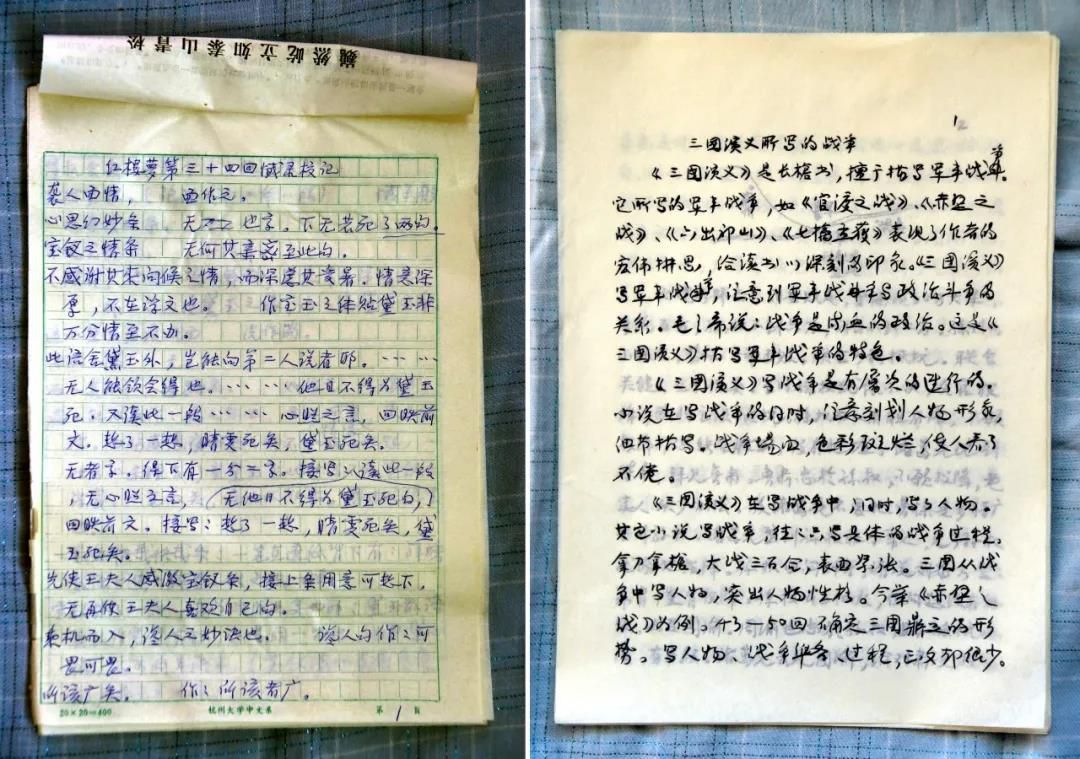 巍然屹立如泰山青松
红楼梦第三十四回感深校记
袭人面情, 面作之。
心思幻妙条 无 也字,下无若死了两句。
宝钗之情条 无何其 至此句。
不感谢其来问候之情,而深虑其受暑。情意深
厚,不在浮文也。 作宝玉之体贴黛玉非
万分情至不办。
此语舍黛玉外,岂能向第二人说者耶。……
无人能领会得也……他日不得为黛玉
死。又读此一段……心照之言,回映前
文。想了一想,晴雯死矣,黛玉死矣。
无者字。得下有一分二字。接写:读此一段
,无心照之言,(无他日不得为黛玉死句,)
回映前文。接写:想了一想,晴雯死矣,黛
玉死矣。
先使王夫人感激宝钗条,接上条用意可想下,
无再使王夫人喜欢自己句。
乘机而入,谗人之妙诀也。 谗人句作:可
畏可畏。
所该广矣。 作:所该者广。
20×20=400 杭州大学中文系 第1页
1
三国演义所写的战争
《三国演义》是长枪书,擅于描写军事战争。
它所写的军事战争,如《官渡之战》、《赤壁之
战》、《六出祁山》、《七擒孟获》表现了作者的
宏伟构思,给读者以深刻的印象。《三国演义》
写军事战争,注意到军事战争与政治斗争的
关系。毛主席说:战争是流血的政治。这是《
三国演义》描写军事战争的特色。
《三国演义》写战争是有层次的进行的。
小说在写战争的同时,注意刻划人物形象,
细节描写。战争场面,色彩斑烂,使人看了
不倦。
《三国演义》在写战争中,同时,写了人物。
其它小说写战争,往往只写具体的战争过程,
拿刀拿枪,大战三百合,表面紧张。三国从战
争中写人物,突出人物性格。今举《赤壁之
战》为例。43—50回确定三国鼎立的形
势。写人物、战争准备、过程,正文却很少。